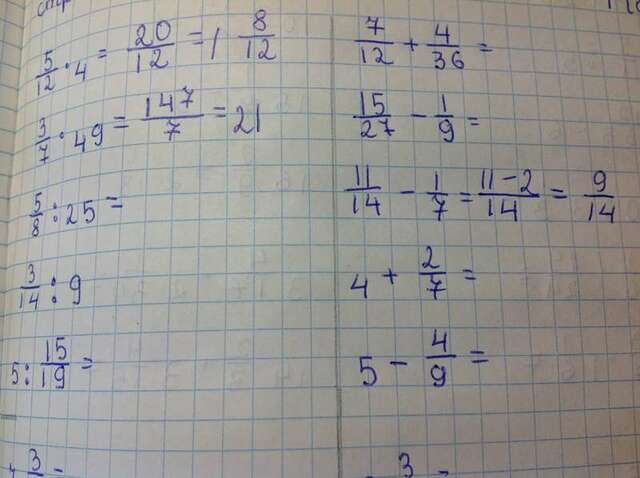 стр
5/12 · 4 = 20/12 = 1 8/12
3/7 · 49 = 147/7 = 21
5/8 : 25 =
3/14 : 9
5 : 15/19 =
7/12 + 4/36 =
15/27 - 1/9 =
11/14 - 1/7 = 11-2/14 = 9/14
4 + 2/7 =
5 - 4/9 =